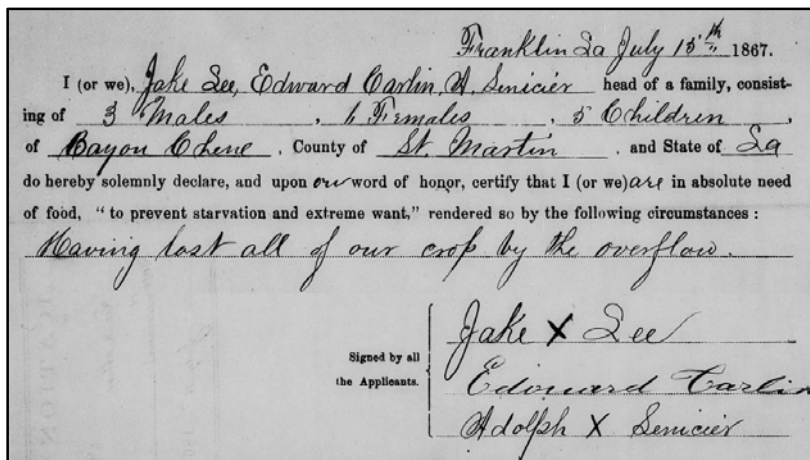 Franklin La July 15th 1867.
I (or we), Jake Lee, Edward Carlin, A. Senicier head of a family, consist-
ing of 3 Males , 6 Females , 5 Children ,
of Bayou Chene , County of St. Martin , and State of La
do hereby solemnly declare, and upon our word of honor, certify that I (or we) are in absolute need
of food, “to prevent starvation and extreme want,” rendered so by the following circumstances :
Having lost all of our crop by the overflow.
Jake X Lee
Signed by all
the Applicants.
Edouard Carlin
Adolph X Senicier